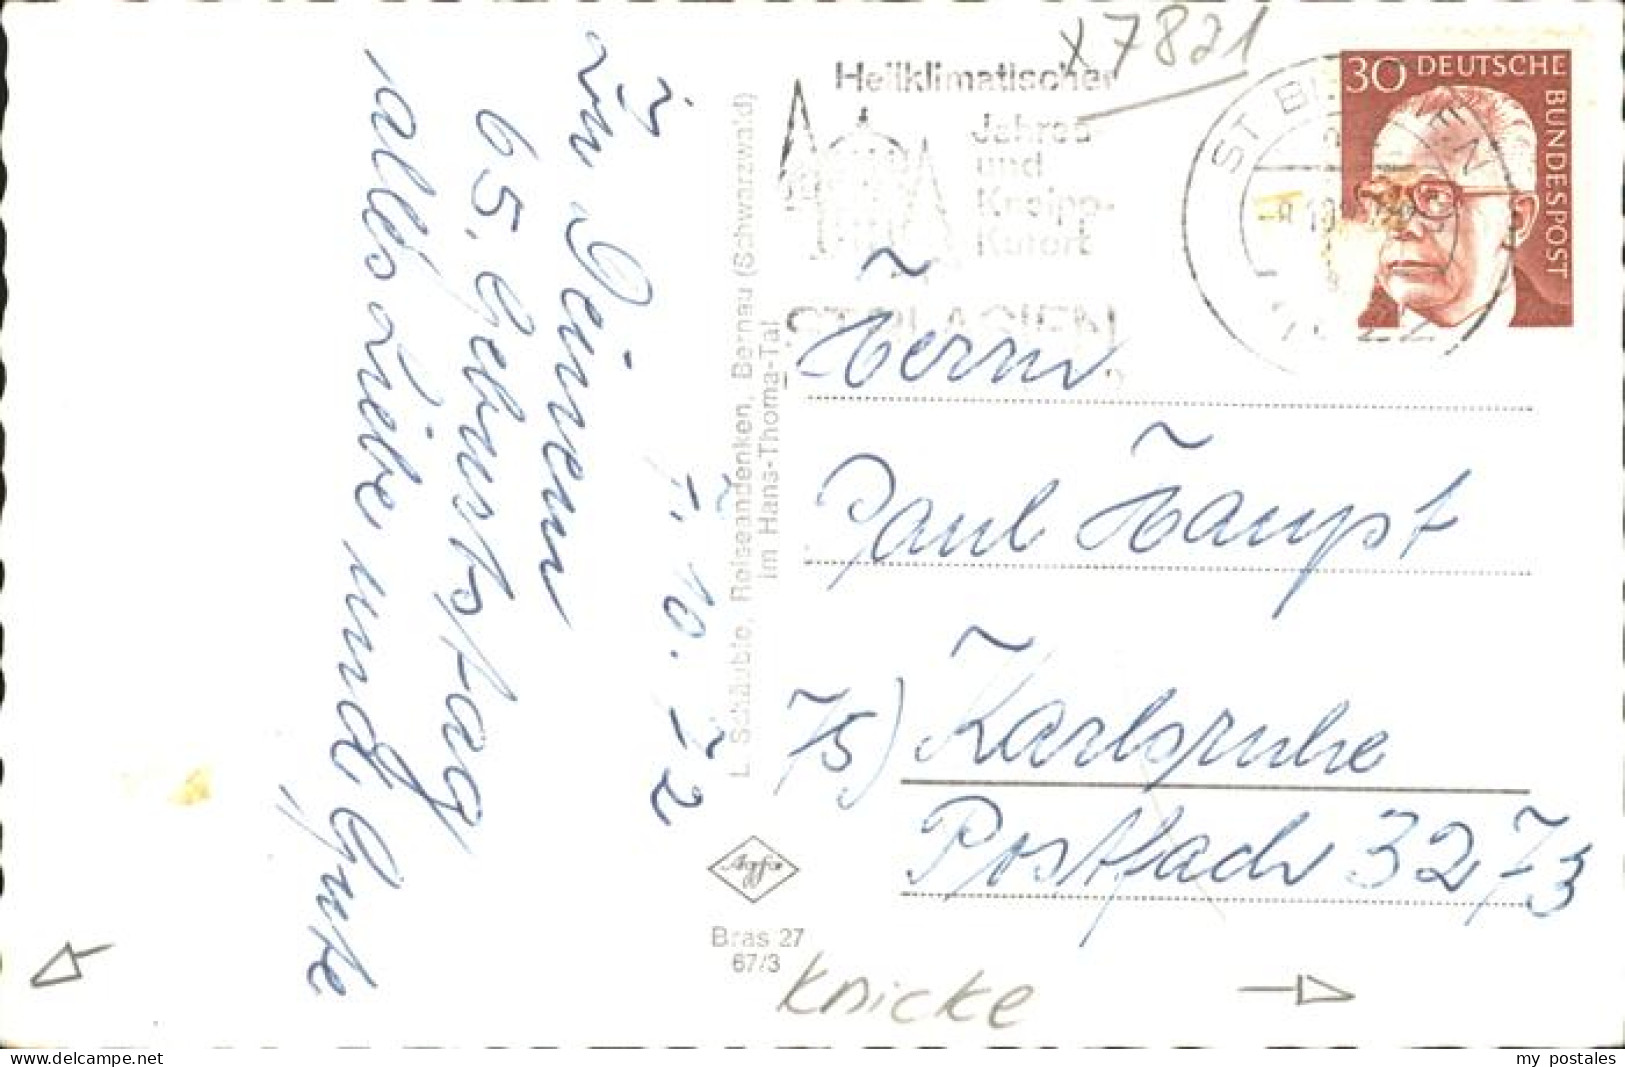 x7821
Heilklimatischer
Jahres-
und
Kneipp-
Kurort
ST. BLASIEN
30 DEUTSCHE
BUNDESPOST
7. 10. 72
Zu Deinem
65. Geburtstag
alles Liebe und Gute
L. Schäuble, Reiseandenken, Bernau (Schwarzwald)
im Hans-Thoma-Tal
Herrn
Paul Haupt
75) Karlsruhe
Postfach 3273
Agfa
Bras 27
67/3
Knicke
www.delcampe.net
my_postales